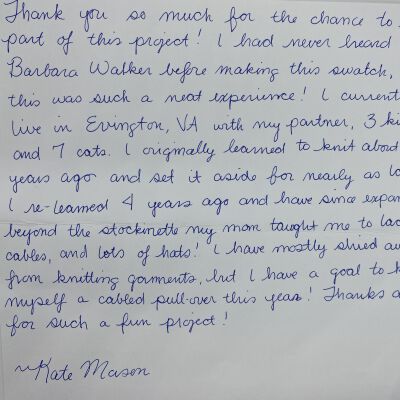 Thank you so much for the chance to
part of this project! I had never heard
Barbara Walker before making this swatch,
this was such a neat experience! I current
live in Evington, VA with my partner, 3 ki
and 7 cats. I originally learned to knit about
years ago and set it aside for nearly as lo
I re-learned 4 years ago and have since expan
beyond the stockinette my mom taught me to lac
cables, and lots of hats! I have mostly shied aw
from knitting garments, but I have a goal to k
myself a cabled pull-over this year! Thanks a
for such a fun project!
~Kate Mason